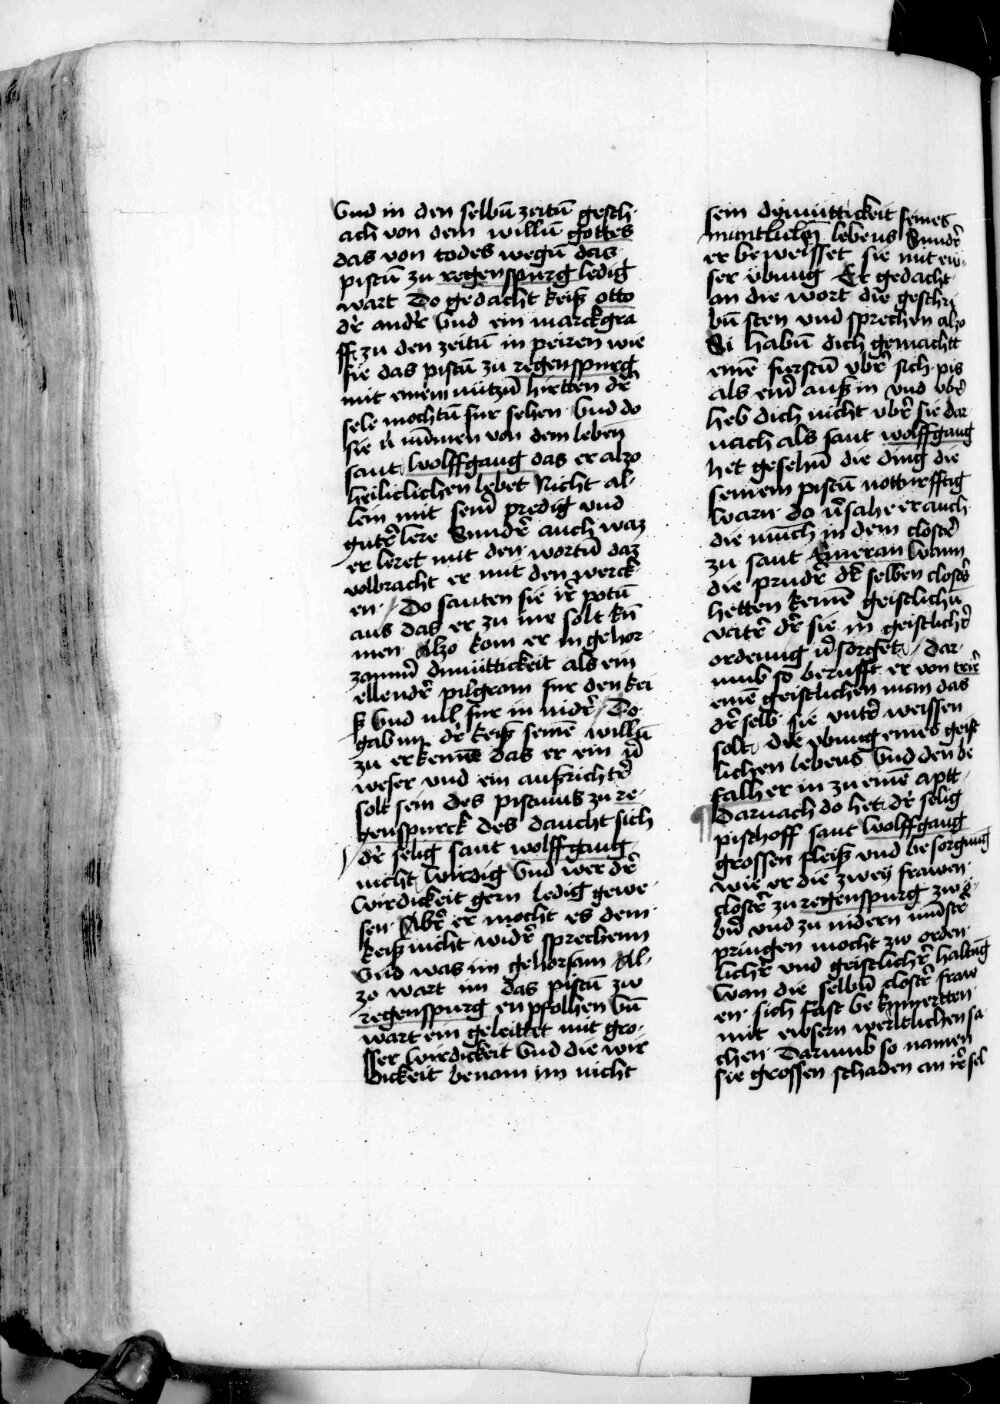 Vnd in den selbn̄ zeitn̄ gesch
ach von dem willn̄ gottes
das von todes wegn̄ das
pistū zu regenspurg ledig
wart Do gedacht keiß otto
dr̄ andr̄ Vnd ein marckgra
ff zu den zeitn̄ in peiren wie
sie das pistū zu regenspurg
mit einem nützn̄ hirtten dr̄
sele mochtn̄ fur sehen Vnd do
sie v̄numen von dem leben
sant wolffgang das er alzo
heiliclichen lebet Nicht al-
lein mit sein̄ predig vnd
gutr̄ lere Sundr̄ auch waz
er leret mit den wortn̄ daz
volbracht er mit den werck
en / Do santen sie ir̄ potn̄
aus das er zu ine solt kū
men Alzo kom er in gehor
zamr̄ dimüttickeit als ein
ellendr̄ pilgram fur den kei
ß Vnd viel fur in nidr̄ / Do
gab im dr̄ keiß seinē willn̄
zu erkennē das er ein v̄
weser vnd ein aufrichtr̄
solt sein des pistums zu re-
genspurck des daucht sich
dr̄ selig sant wolffgang
nicht wirdig Vnd wer dr̄
wirdickeit gern ledig gewe
sen Abr̄ er mocht es dem
keiß nicht widr̄ sprechenn
Vnd was im gehorsam Al-
zo wart im das pistū zw
regenspurg enpfolhen Vn̄
wart ein geleittet mit gro-
sser wirdickeit Vnd die wir
dickeit benam im nicht
sein demüttickeit seines
munchlichn̄ lebens Sundr̄
er beweisset sie mit ew-
ser übung Er gedacht
an die wort die geschri
bn̄ sten vnd sprechen alzo
Si habn̄ dich gemachtt
einē furstn̄ vbr̄ sich pis
als ein̄ auß in vnd vbr̄
heb dich nicht vbr̄ sie dar
nach als sant wolffgang
het gesehn̄ die ding die
seinem pistū notturfftig
warn do v̄sahe er auch
die münch in dem clostr̄
zu sant Haymeran wann
die prudr̄ dr̄ selben clostr̄
hetten keinē geistlichn̄
vatr̄ dr̄ sie in geistlichr̄
ordenung v̄sorget / Dar-
umb so berufft er von trir̄
einē geistlichen man das
dr̄ selb sie vntr̄ weissen
solt die vbung eines geist
lichen lebens Vnd den be
falh er in zu einē aptt
Darnach do het dr̄ selig
pischoff sant wolffgang
grossen fleiß vnd besorgung
wie er die zwey frawen
clostr̄ zu regenspurg zw o-
br̄n vnd zu nidern münstr̄
pringen mocht zw orden
lichr̄ vnd geistlichr̄ haltūg
Wan die selbn̄ clostr̄ fraw
en sich fast bekumertten
mit ewsern werltlichen sa
chen Darumb so namen
sie grossen schaden an ir̄ sel